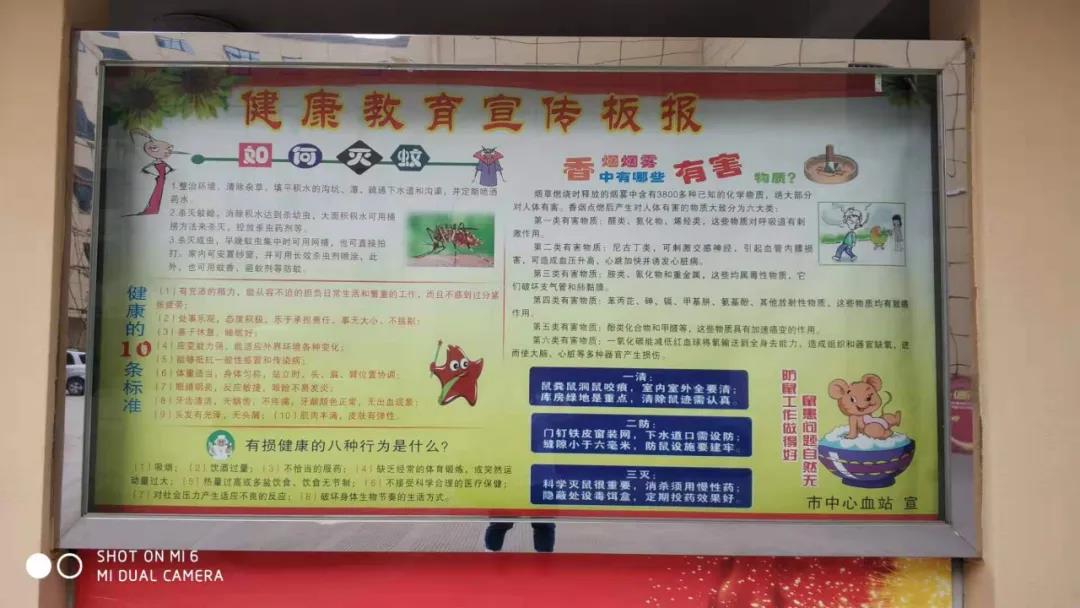 健康教育宣传板报
如何灭蚊
1.整治环境，清除杂草，填平积水的沟坑、潭，疏通下水道和沟渠，并定期喷洒
药水。
2.杀灭蚊蚴，消除积水达到杀幼虫，大面积积水可用捕
捞方法来杀灭，投放杀虫药剂等。
3.杀灭成虫，早晚蚊虫集中时可用网捕，也可直接拍
打。家内可安置纱窗，并可用长效杀虫剂喷涂，此
外，也可用蚊香、避蚊剂等防蚊。
健康的10条标准
(1)有充沛的精力，能从容不迫的担负日常生活和繁重的工作，而且不感到过分紧
张疲劳；
(2)处事乐观，态度积极，乐于承担责任，事无大小，不挑剔；
(3)善于休息，睡眠好；
(4)应变能力强，能适应外界环境各种变化；
(5)能够抵抗一般性感冒和传染病；
(6)体重适当，身体匀称，站立时，头、肩、臂位置协调；
(7)眼睛明亮，反应敏捷，眼睑不易发炎；
(8)牙齿清洁，无龋齿，不疼痛，牙龈颜色正常，无出血现象；
(9)头发有光泽，无头屑；(10)肌肉丰满，皮肤有弹性。
有损健康的八种行为是什么？
(1)吸烟；(2)饮酒过量；(3)不恰当的服药；(4)缺乏经常的体育锻炼，或突然运
动量过大；(5)热量过高或多盐饮食、饮食无节制；(6)不接受科学合理的医疗保健；
(7)对社会压力产生适应不良的反应；(8)破坏身体生物节奏的生活方式。
香烟烟雾中有哪些有害物质？
烟草燃烧时释放的烟雾中含有3800多种已知的化学物质，绝大部分
对人体有害。香烟点燃后产生对人体有害的物质大致分为六大类：
第一类有害物质：醛类、氮化物、烯烃类，这些物质对呼吸道有刺
激作用。
第二类有害物质：尼古丁类，可刺激交感神经，引起血管内膜损
害，可造成血压升高、心跳加快并诱发心脏病。
第三类有害物质：胺类、氰化物和重金属，这些均属毒性物质，它
们破坏支气管和肺黏膜。
第四类有害物质：苯丙芘、砷、镉、甲基肼、氨基酚、其他放射性物质，这些物质均有致癌
作用。
第五类有害物质：酚类化合物和甲醛等，这些物质具有加速癌变的作用。
第六类有害物质：一氧化碳能减低红血球将氧输送到全身去能力，造成组织和器官缺氧，进
而使大脑、心脏等多种器官产生损伤。
一清：
鼠粪鼠洞鼠咬痕，室内室外全要清；
库房绿地是重点，清除鼠迹需认真。
二防：
门钉铁皮窗装网，下水道口需设防；
缝隙小于六毫米，防鼠设施要建牢。
三灭：
科学灭鼠很重要，消杀须用慢性药；
隐蔽处设毒饵盒，定期投药效果好。
防鼠工作做得好
鼠患问题自然无
市中心血站 宣
SHOT ON MI 6
MI DUAL CAMERA